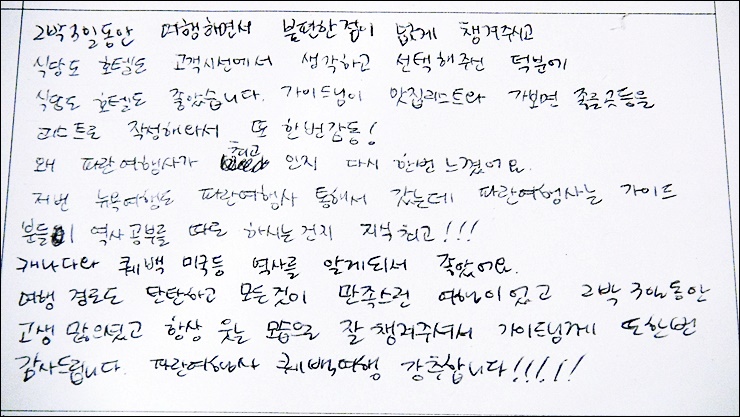 2박3일동안 여행하면서 불편한점이 없게 챙겨주시고
식당도 호텔도 고객시선에서 생각하고 선택해주신 덕분에
식당도 호텔도 좋았습니다. 가이드님이 맛집리스트와 가보면 좋을곳들을
리스트로 작성해와서 또 한번감동!
왜 파란여행사가 최고 인지 다시 한번 느꼈어요.
저번 뉴욕여행도 파란여행사 통해서 갔는데 파란여행사는 가이드
분들이 역사공부를 따로 하시는건지 지식 최고!!!
캐나다와 퀘백 미국등 역사를 알게되서 좋았어요.
여행 경로도 탄탄하고 모든것이 만족스런 여행이었고 2박 3일동안
고생 많으셨고 항상 웃는 모습으로 잘 챙겨주셔서 가이드님께 또한번
감사드립니다. 파란여행사 퀘백여행 강추합니다!!!!!